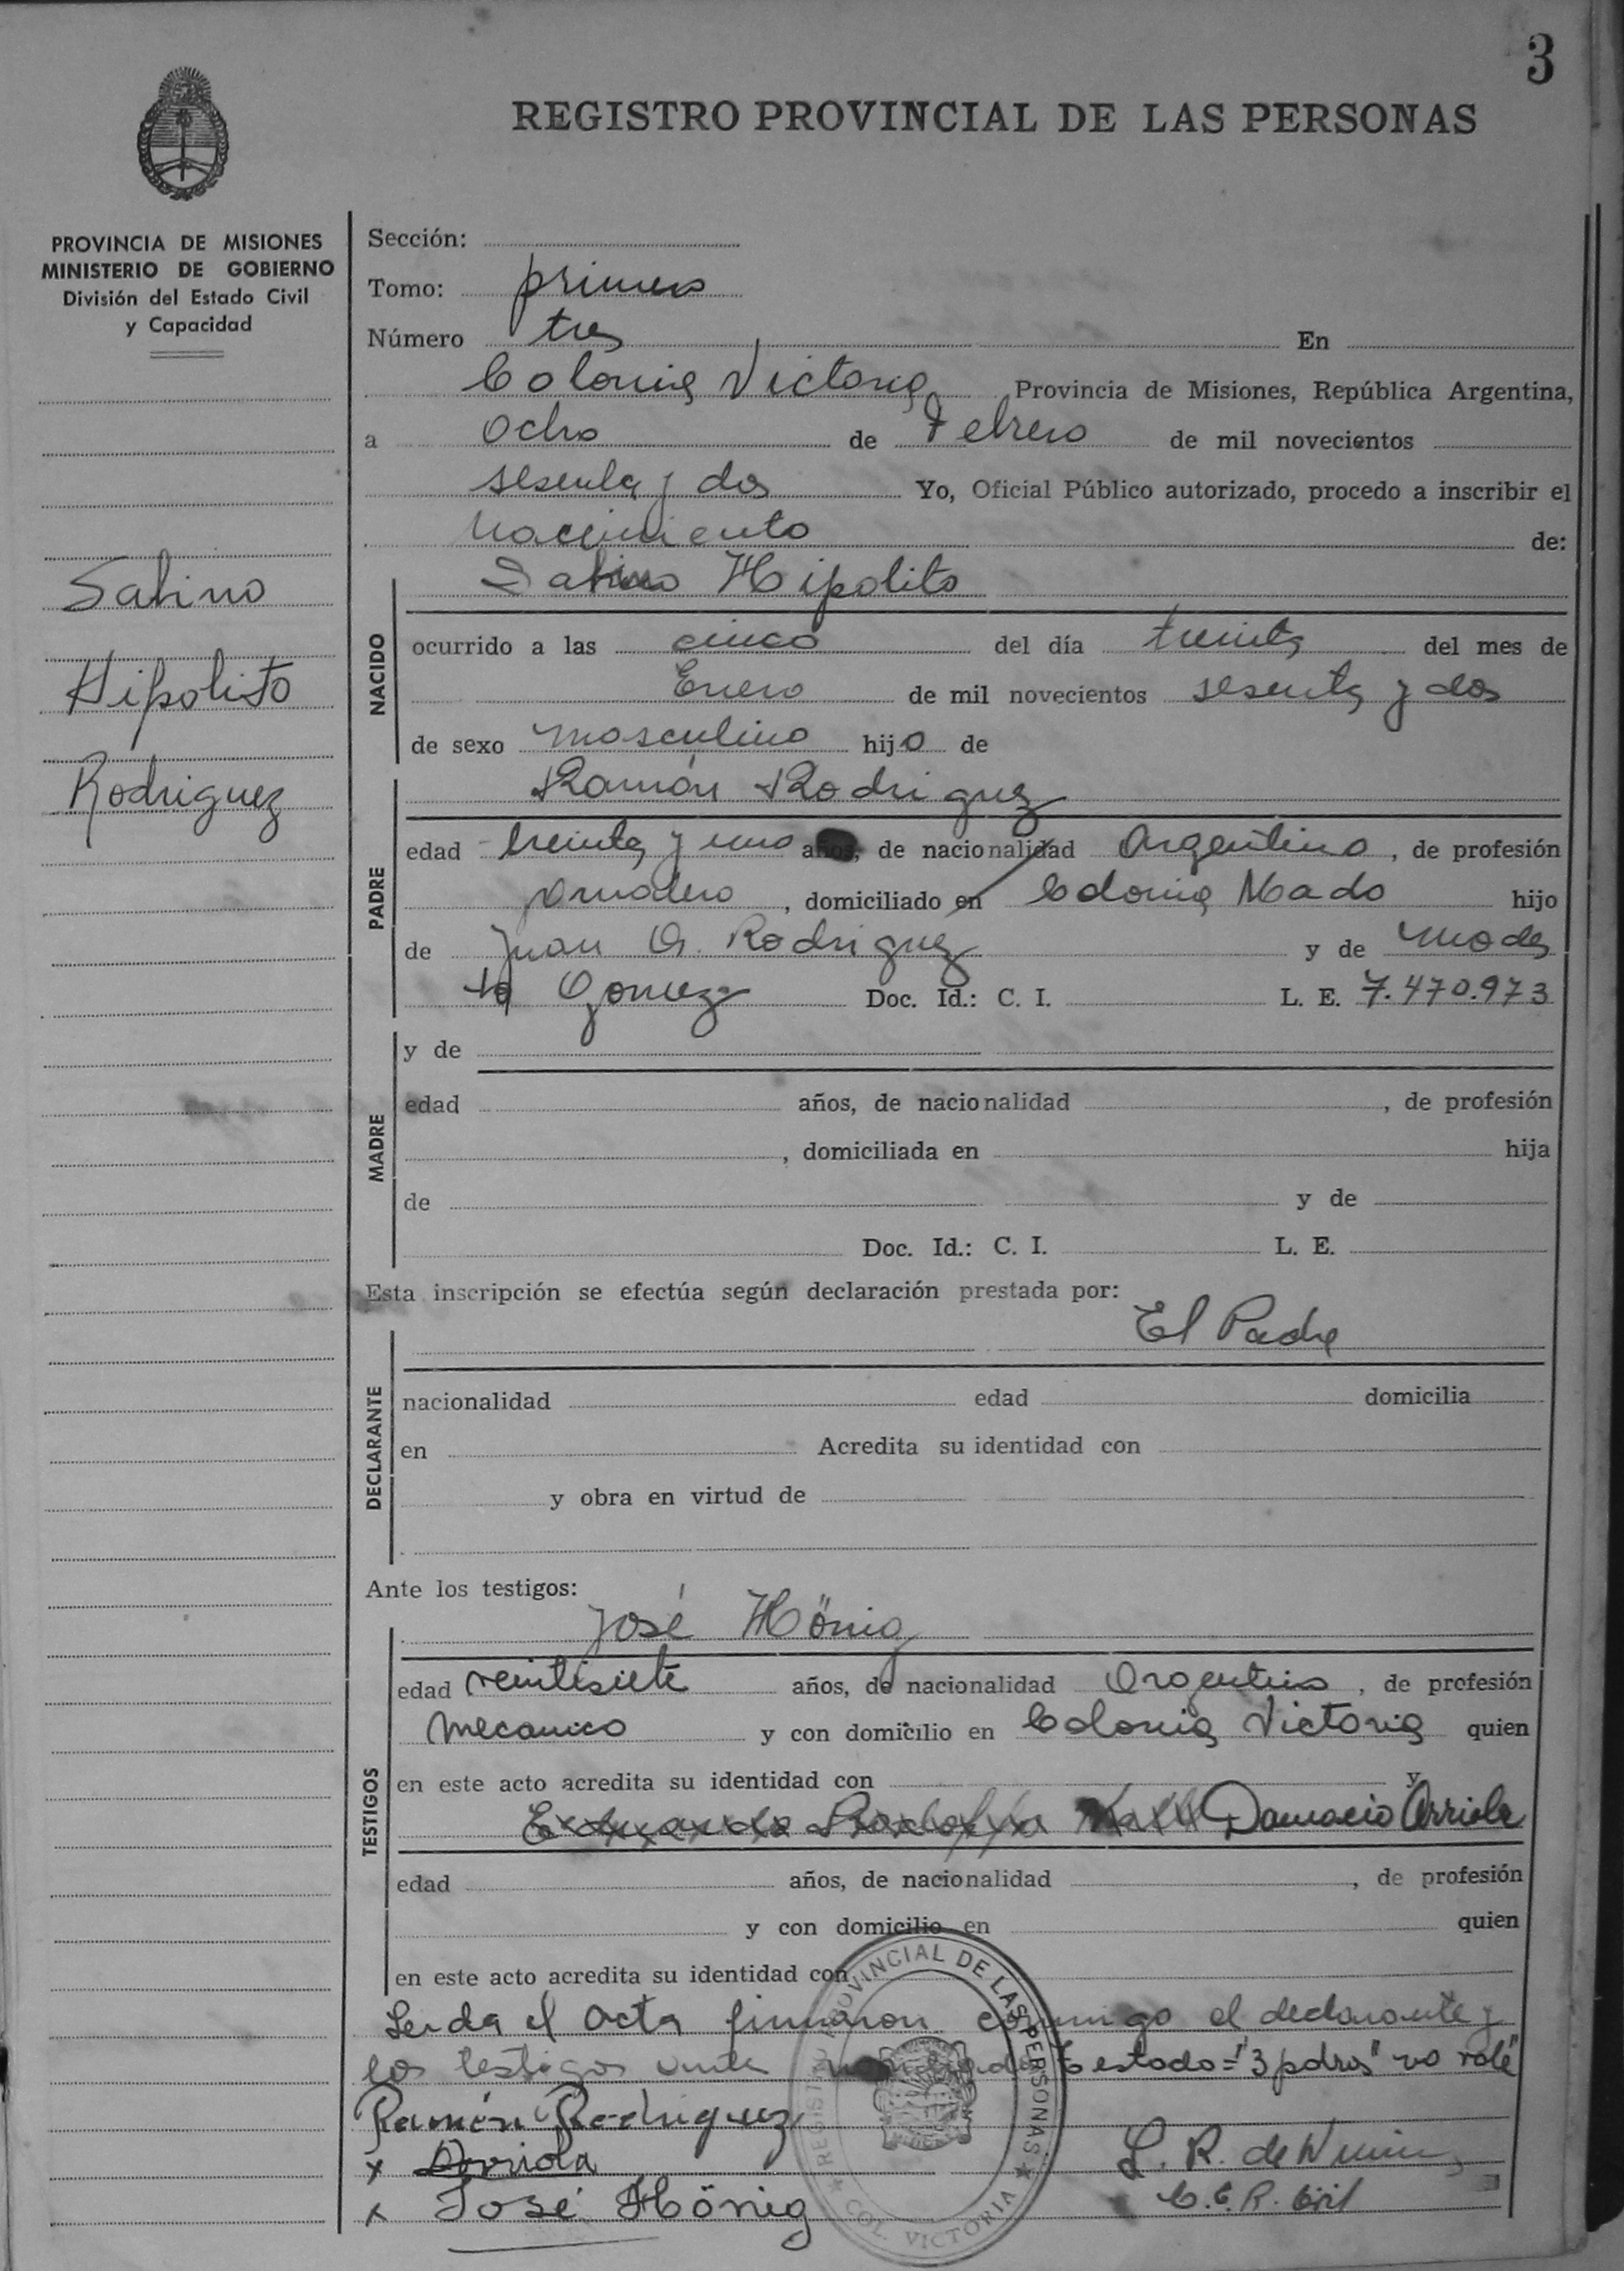 3
REGISTRO PROVINCIAL DE LAS PERSONAS
PROVINCIA DE MISIONES
MINISTERIO DE GOBIERNO
División del Estado Civil
y Capacidad
Sabino
Hipolito
Rodriguez
Sección:
Tomo: primero
Número tres En
Colonia Victoria Provincia de Misiones, República Argentina,
a ocho de Febrero de mil novecientos
sesenta y dos Yo, Oficial Público autorizado, procedo a inscribir el
nacimiento de:
Sabino Hipolito
NACIDO
ocurrido a las cinco del día treinta del mes de
Enero de mil novecientos sesenta y dos
de sexo masculino hijo de
Ramón Rodriguez
PADRE
edad treinta y uno años, de nacionalidad Argentino, de profesión
, domiciliado en Colonia Mado hijo
de Juan A. Rodriguez y de Modes
ta Gomez Doc. Id.: C. I. L. E. 7.470.973
MADRE
y de
edad años, de nacionalidad , de profesión
, domiciliada en hija
de y de
Doc. Id.: C. I. L. E.
Esta inscripción se efectúa según declaración prestada por:
El Padre
DECLARANTE
nacionalidad edad domicilia
en Acredita su identidad con
y obra en virtud de
Ante los testigos:
José Hönig
TESTIGOS
edad veintisiete años, de nacionalidad Argentino, de profesión
mecanico y con domicilio en Colonia Victoria quien
en este acto acredita su identidad con y
Damacio Arriola
edad años, de nacionalidad , de profesión
y con domicilio en quien
en este acto acredita su identidad con
Leida el acta firmaron conmigo el declarante y
los testigos testado="3 pdrus" no vale
Ramón Rodriguez
x Arriola L. R. de
x José Hönig
REGISTRO PROVINCIAL DE LAS PERSONAS
COL. VICTORIA